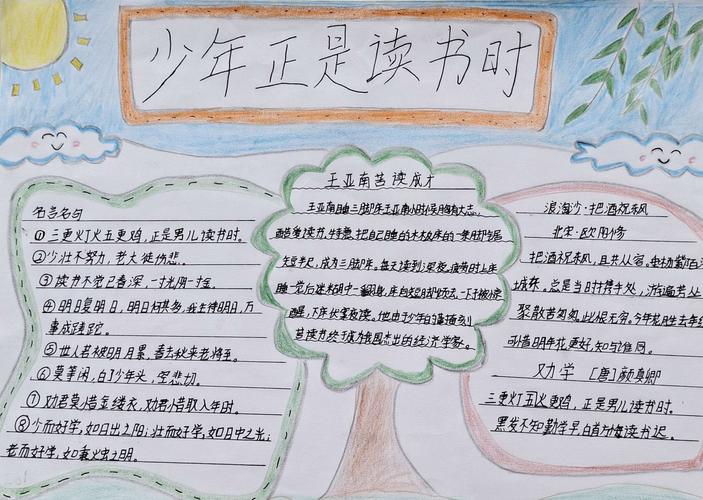 少年正是读书时
名言名句
①三更灯火五更鸡，正是男儿读书时。
②少壮不努力，老大徒伤悲。
③读书不觉已春深，一寸光阴一寸金。
④明日复明日，明日何其多，我生待明日，万
事成蹉跎。
⑤世人若被明月累，春去秋来老将至。
⑥莫等闲，白了少年头，空悲切。
⑦劝君莫惜金缕衣，劝君惜取少年时。
⑧少而好学，如日出之阳；壮而好学，如日中之光；
老而好学，如秉烛之明。
王亚南苦读成才
王亚南睡三脚床王亚南小时候胸有大志，
酷爱读书。特意把自己睡的木板床的一条脚锯
短半尺，成为三脚床。每天读到深夜，疲劳时上床
睡一觉后迷糊中一翻身，床向短脚方向去，一下子被惊
醒，下床伏案夜读。他由于少年的勤奋刻
苦读书终于成为我国杰出的经济学家。
浪淘沙·把酒祝东风
北宋·欧阳修
把酒祝东风，且共从容。垂杨紫陌
城东。总是当时携手处，游遍芳丛
聚散苦匆匆，此恨无穷。今年花胜去年红
可惜明年花更好，知与谁同。
劝学 [唐]颜真卿
三更灯五火更鸡，正是男儿读书时。
黑发不知勤学早，白首方悔读书迟。